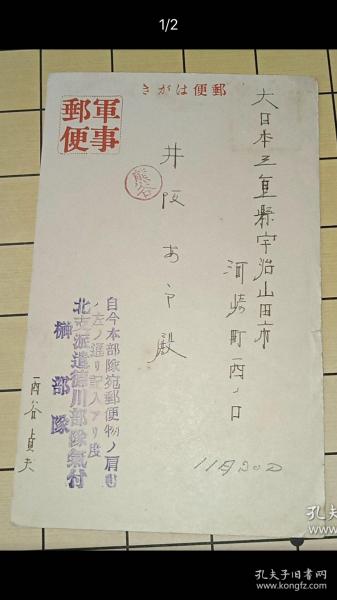 1/2
郵便はがき
軍事
郵便
熊谷
大日本三重縣宇治山田市
河崎町西ノ口
井阪あ
殿
11月20日
自今本部隊宛郵便物ノ肩書
ハ左ノ通リ記入アリ度
北支派遣德川部隊氣付
榊部隊
西谷貞夫
孔夫子旧书网